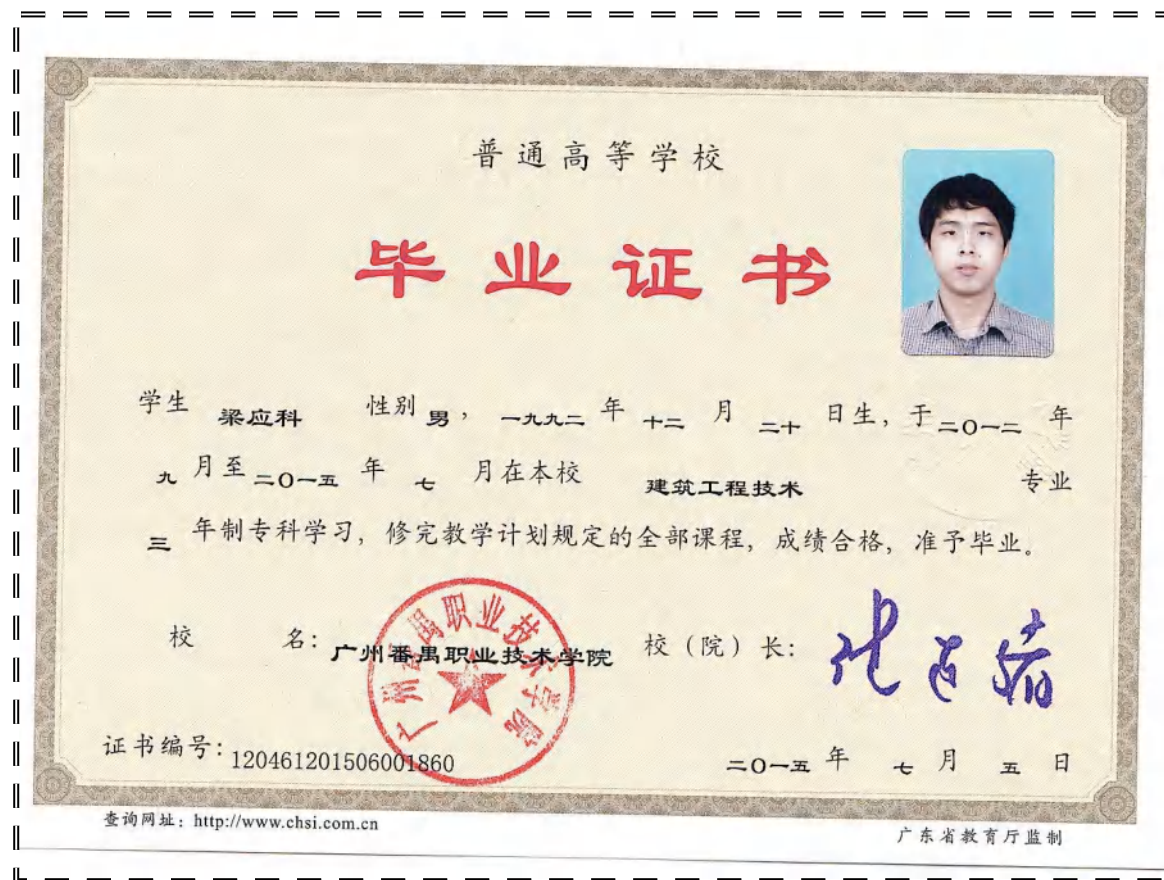 普通高等学校
毕业证书
学生 梁应科 性别 男， 一九九二 年 十二 月 二十 日生，于 二〇一二 年
九 月至 二〇一五 年 七 月在本校 建筑工程技术 专业
三 年制专科学习，修完教学计划规定的全部课程，成绩合格，准予毕业。
校 名：广州番禺职业技术学院 校（院）长：
广州番禺职业技术学院
证书编号：120461201506001860 二〇一五 年 七 月 五 日
查询网址：http://www.chsi.com.cn 广东省教育厅监制